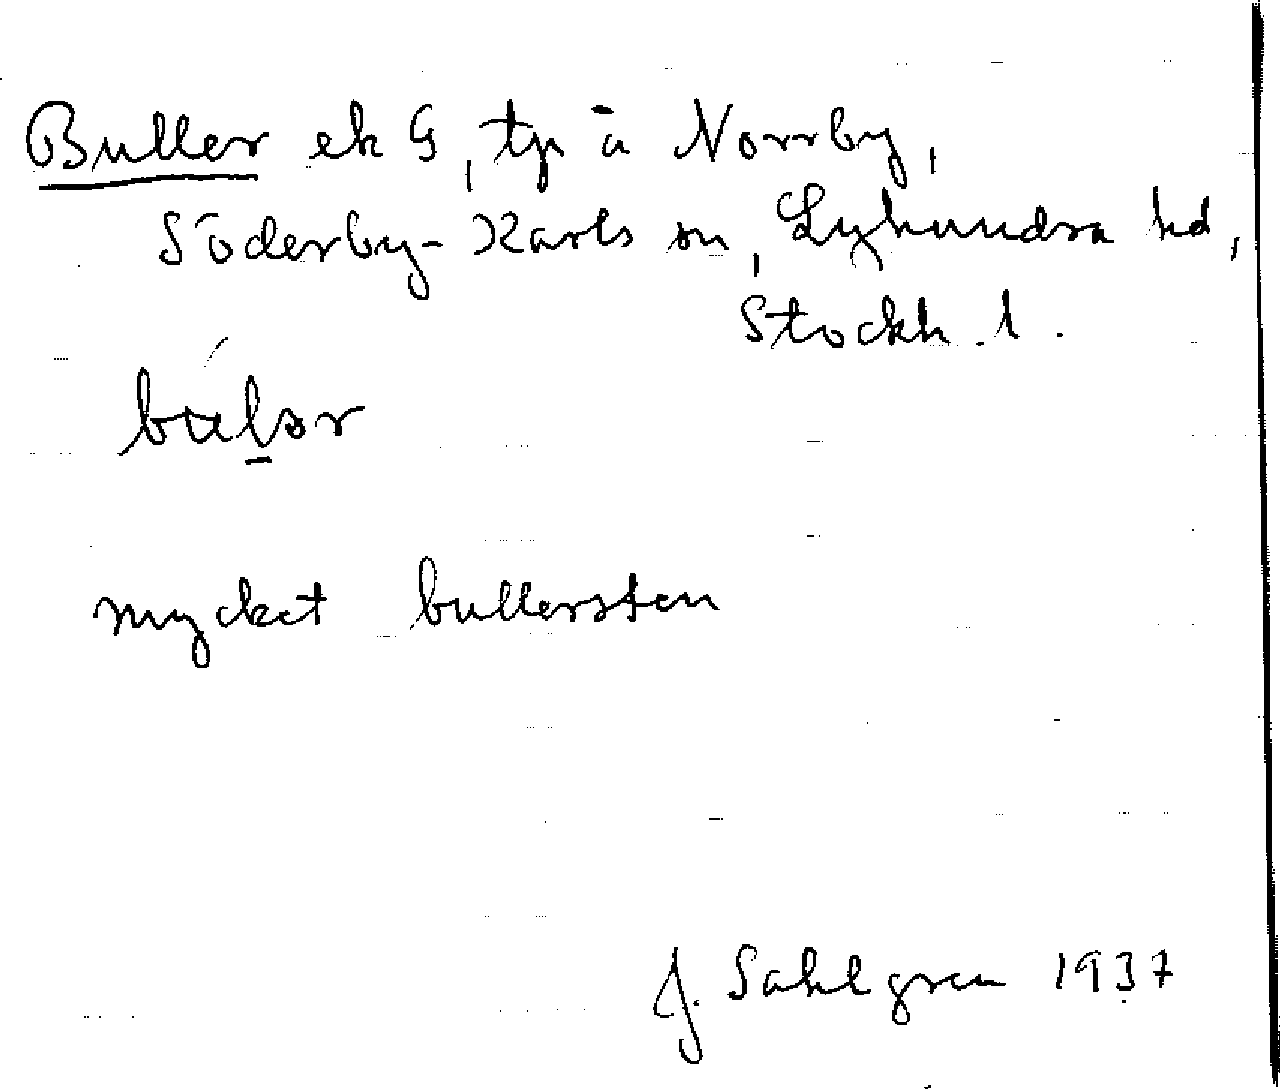 Buller ek G, tp å Norrby,
Söderby-Karls sn, Lyhundra hd,
Stockh. l.
mycket bullersten
J. Sahlgren 1937